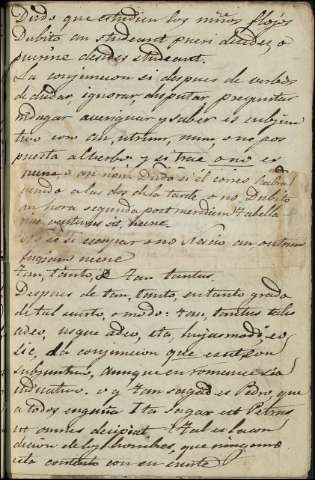 Dudo que estudien los niños flojos
Dubito an studeant pueri desides, o
pueri ne desides studeant.
La conjuncion si despues de verbos
de dudar ignorar, disputar preguntar
indagar averiguar y saber es subjun
tivo con an, utrum, num, o ne pos
puesta al verbo y si trae o no es
necne, o an non. Dudo si el correo
a las dos de la tarde o no. Dubito
an hora segunda post meridiem tabella
rius venturus sit, necne.
No sé si escapar o no Nescio an utrum
fugiam necne
tan, tanto, Tan tantus.
Despues de tan, tanto, en tanto grado
de tal suerte, o modo: tan, tantus talis
adeo, usque adeo, ita, hujusmodi, eo,
sic, la conjuncion que es ut con
subjuntivo, aunque en romance sea
indicativo. v g Tan sagaz es Pedro, que
a todos engaña Ita sagax est Petrus
ut omnes decipiat. Tal es la con
dicion de los hombres, que ninguno
está contento con su suerte